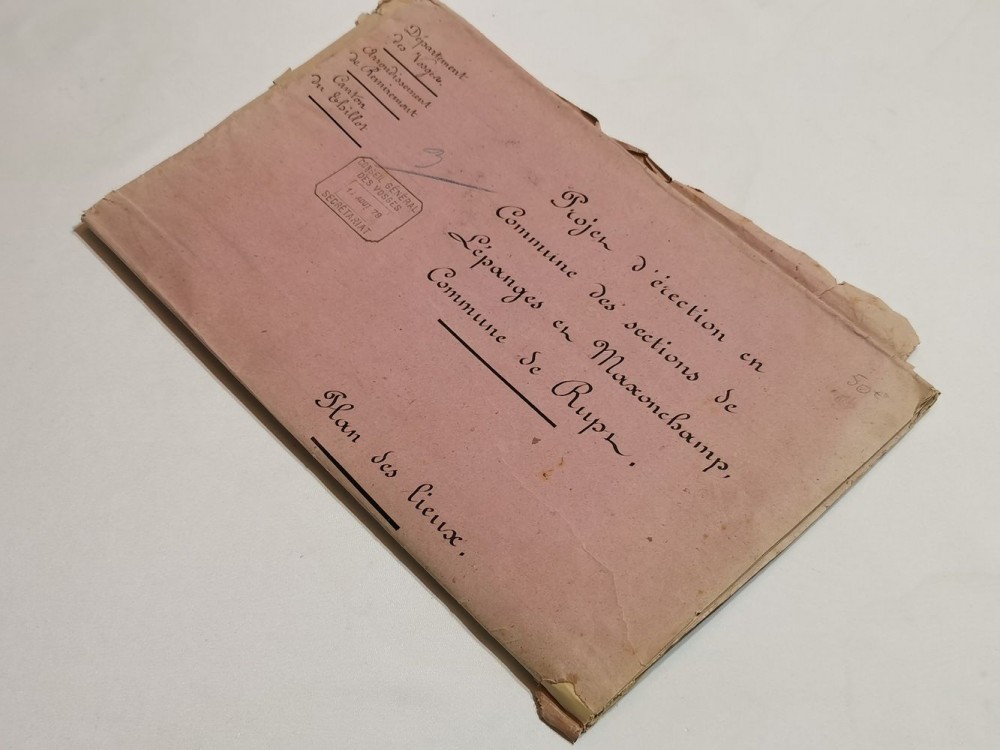 Département
des Vosges.
Arrondissement
de Remiremont
Canton
du Thillot
3
CONSEIL GÉNÉRAL
DES VOSGES
AOUT 79
SECRÉTARIAT
Projet d'érection en
Commune des sections de
Lépanges et Maxonchamp,
Commune de Rupt.
Plan des lieux.
50€